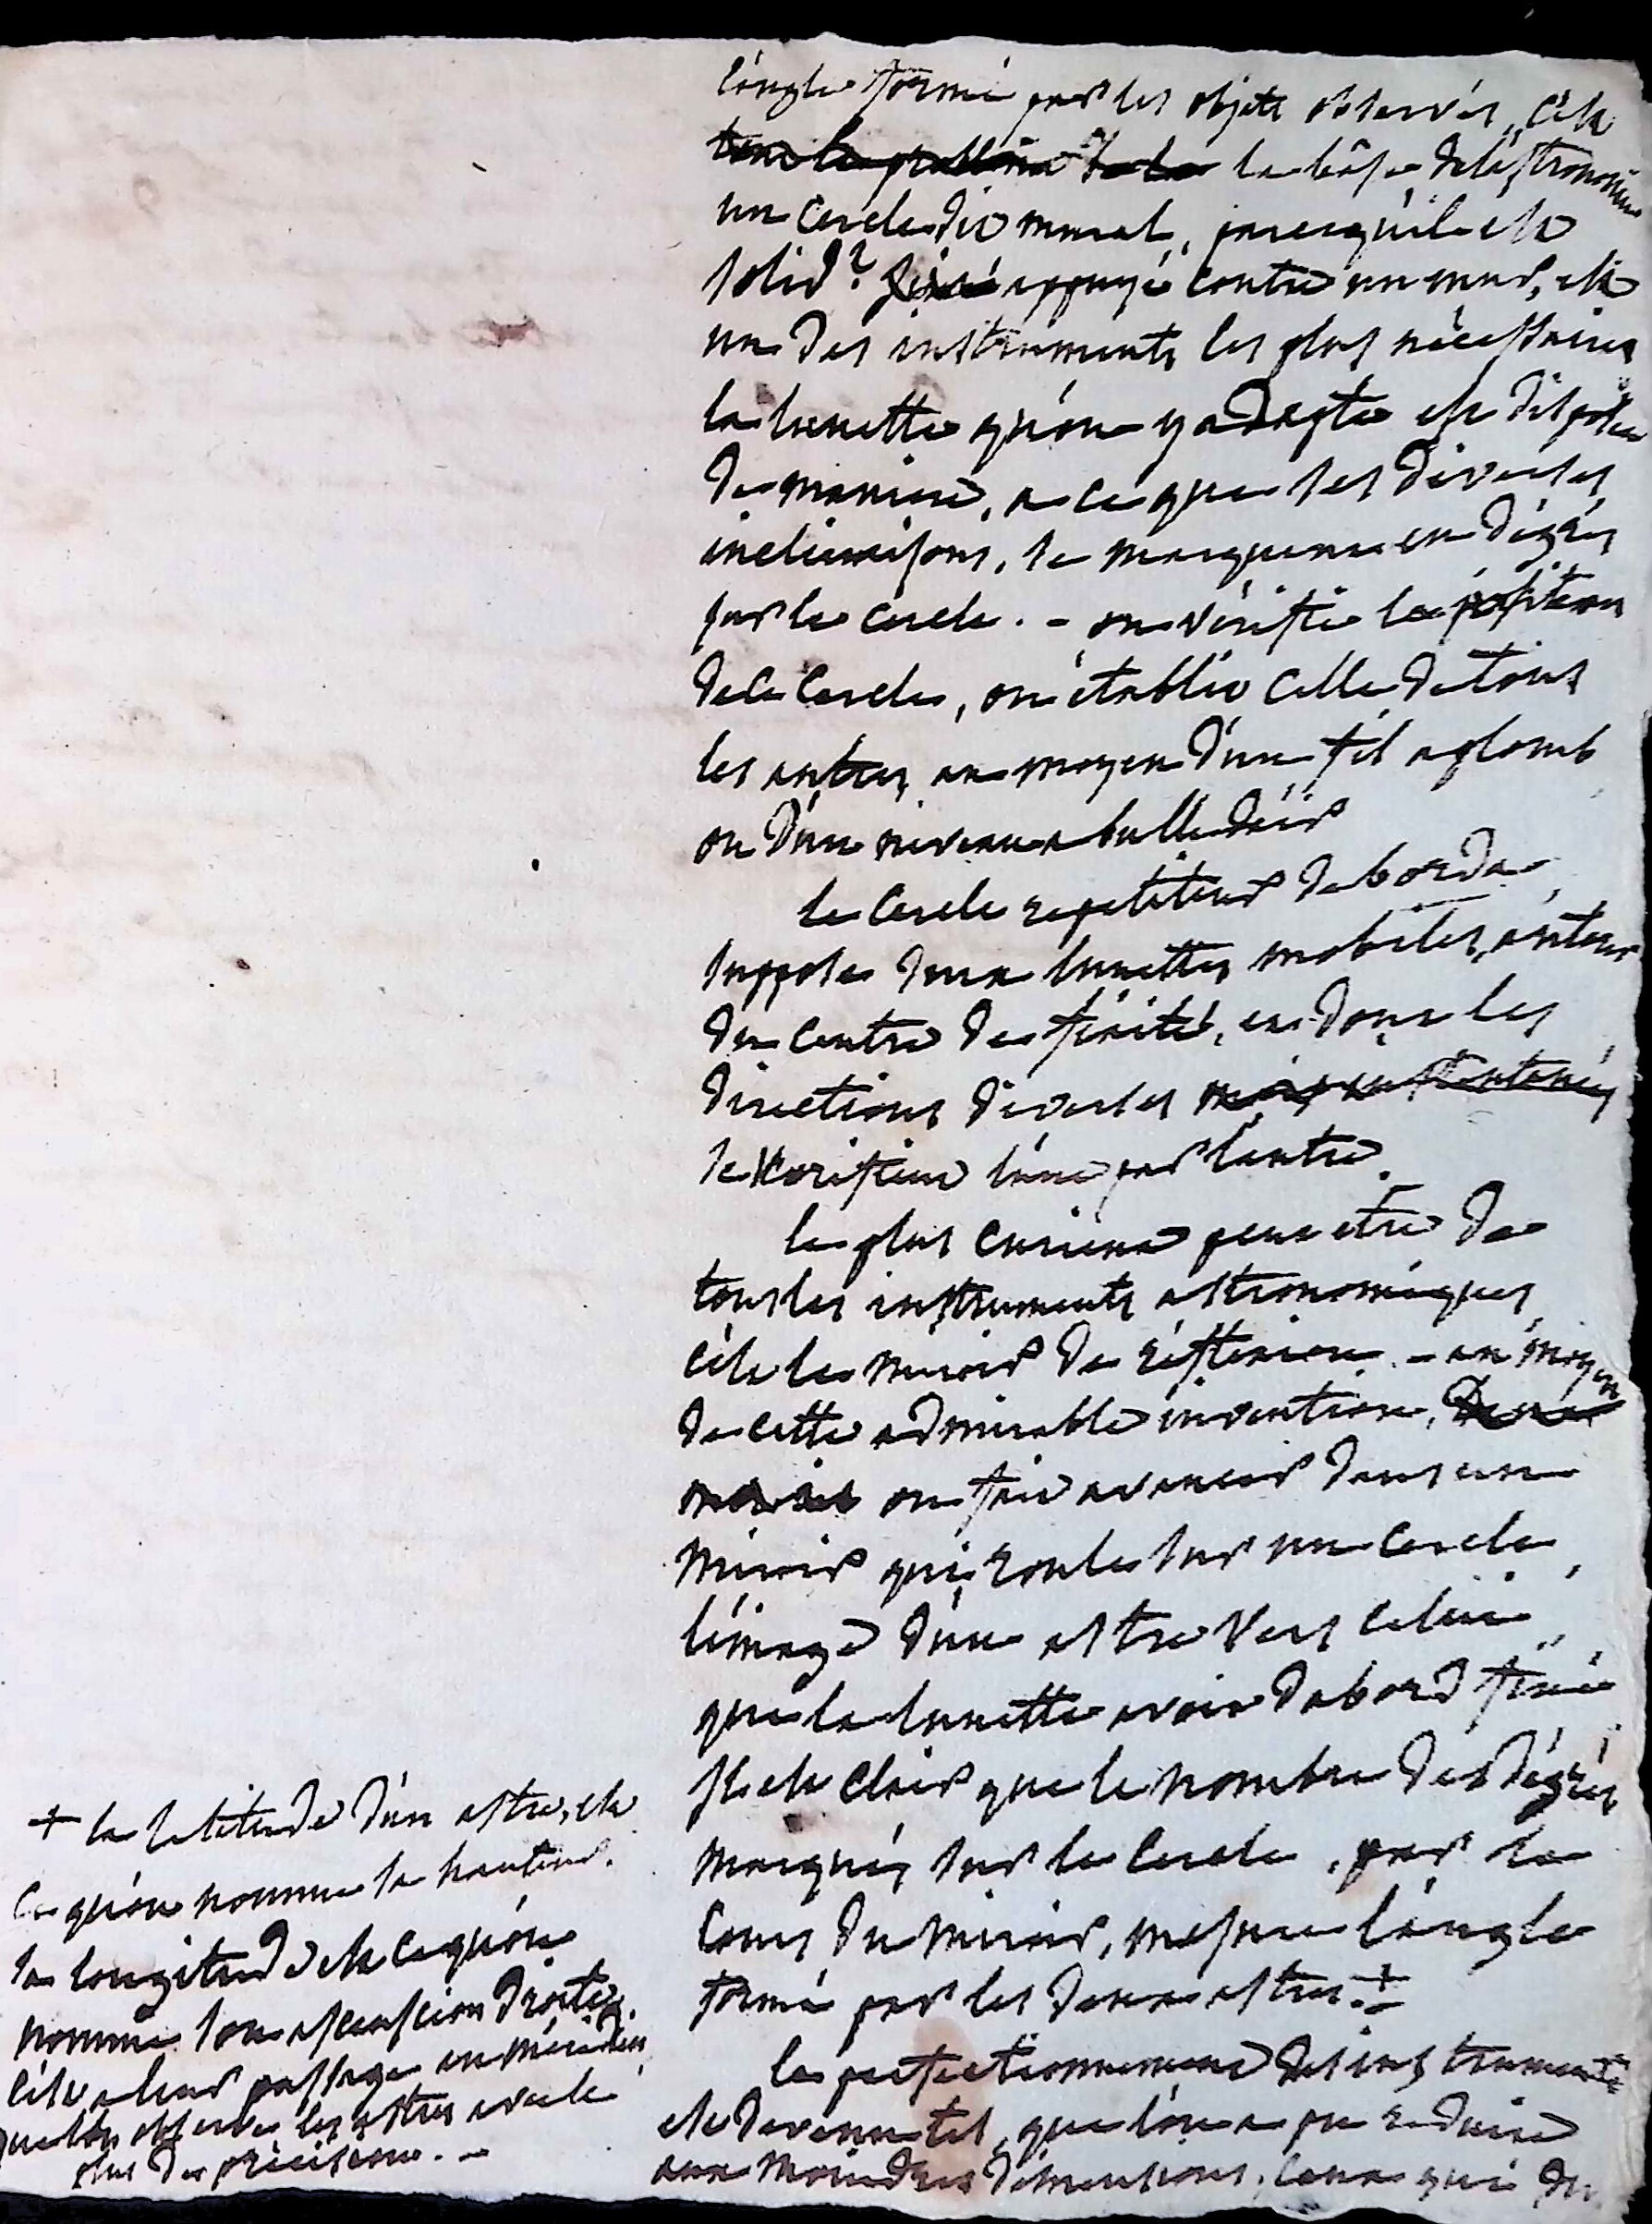 l'angle formé par les objets observés, c'est
la base de l'astronomie
un cercle dit mural, parcequ'il est
solidt appuyé contre un mur, est
un des instruments les plus nécessaires
la lunette qu'on y adapte est disposée
de maniere, a ce que ses diverses
inclinaisons, se marquent en dégrés
sur le cercle. - on vérifie la position
de ce cercle, on établit celle de tous
les autres, au moyen d'un fil aplomb
ou d'un niveau a bulle d'air
le cercle repetiteur de borda,
suppose deux lunettes mobiles, autour
du centre de fixité, et dont les
directions diverses
se vérifient l'une par l'autre.
le plus curieux peut etre de
tous les instruments astronomiques,
c'est le miroir de réflexion. - au moyen
de cette admirable invention,
on fait avancer dans un
miroir qui roule sur un cercle,
l'image d'un astre vers celui
que la lunette avoit d'abord fixé
il est clair que le nombre des dégrés
marqués sur le cercle, par la
cours du miroir, mesure l'angle
formé par les deux astres. +
le perfectionnement des instruments
est devenu tel, que l'on a pu reduire
aux moindres dimensions, ceux qui du
+ la latitude d'un astre, est
ce qu'on nomme sa hauteur.
sa longitude est ce qu'on
nomme son ascension droite.
c'est a leur passage au méridien
que l'on observe les astres avec le
plus de précision. -